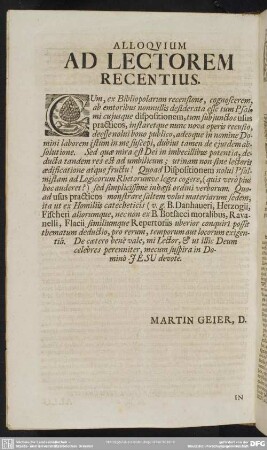 ALLOQVIUM
AD LECTOREM
RECENTIUS.
CUm, ex Bibliopolarum recensione, cognoscerem,
ab emtoribus nonnullis desiderata esse tum Psal-
mi cujusque dispositionem, tum subjunctos usus
practicos, instaretque nunc nova operis recusio,
deesse nolui bono publico, adeoque in nomine Do-
mini laborem istum in me suscepi, dubius tamen de ejusdem ab-
solutione. Sed qua mira est Dei in imbecillibus potentia, de-
ducta tandem res est ad umbilicum; utinam non sine lectoris
ædificatione atque fructu! Quoad Dispositionem nolui Psal-
mistam ad Logicorum Rhetorumve leges cogere, (quis vero pius
hoc auderet?) sed simplicissime inhæsi ordini verborum. Quo-
ad usus practicos monstrare saltem volui materiarum sedem,
ita ut ex Homiliis catecheticis (v. g. B. Danhaueri, Herzogii,
Fischeri aliorumque, nec non ex B. Botsacci moralibus, Rava-
nelli, Flacii similiumque Repertoriis uberior conquiri posset
thematum deductio, pro rerum, temporum aut locorum exigen-
tiâ. De cætero bene vale, mi Lector, & ut illic Deum
celebres perenniter, mecum suspira in Do-
mino JESU devote.
MARTIN GEIER, D.
IN